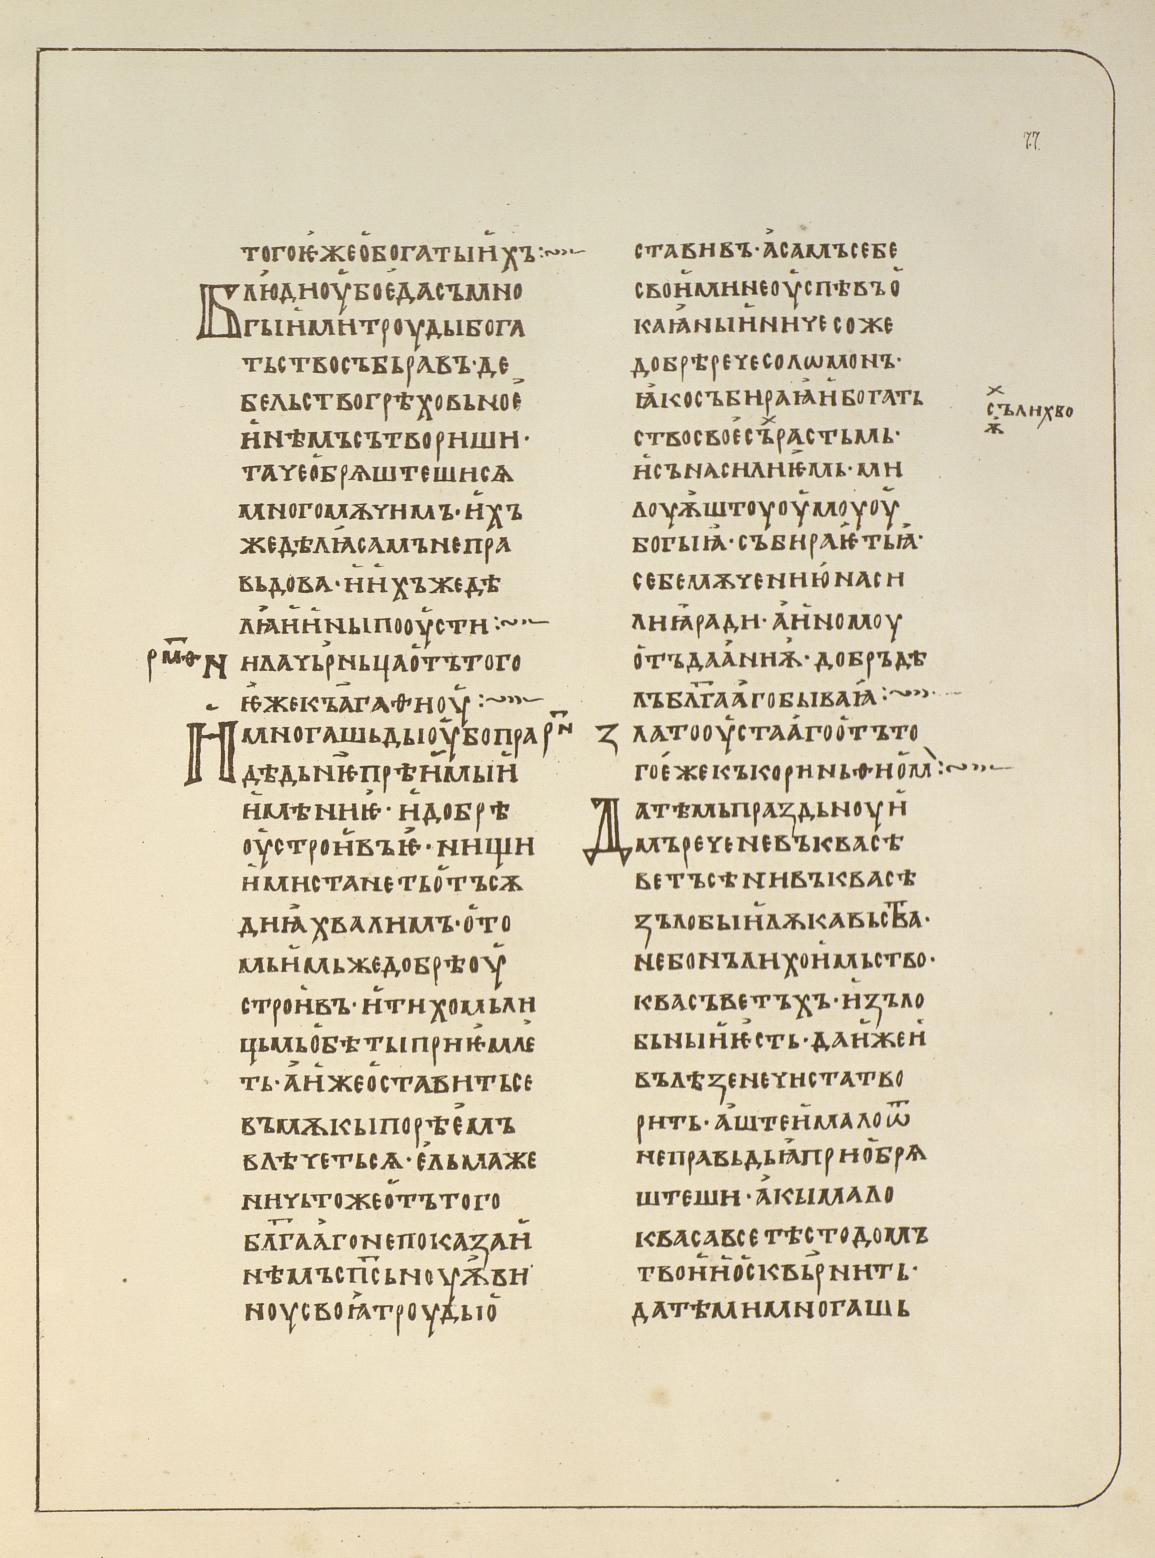 77
тогоѥ·жеобогатыихъ:~
Блюдиоубоѥдасъмно
гыимитроудыбога
тьствосъбьравъ·де
бельствогрѣховьное
инѣмъсътвориши·
тачеобрѧштешисѧ
многомѫчимъ·ихъ
жедѣлꙗсамънепра
вьдова·иихъжедѣ
лꙗииныпооусти:~
рм҃ѳ Нилачьрньцаотътого
ѥжекъагаѳноу:~
Имногашьдыоубопра
дѣдьниѥпрѣимыи
имѣниѥ·идобрѣ
оустроивъѥ·нищи
имистанетьотъсѫ
диꙗхвалимъ·ото
мьимьжедобрѣоу
строивъ·итихомьли
цьмьобѣтыприѥмле
ть·аижеоставитьсе
въмѫкыпорѣемъ
влѣчетьсѧ·ельмаже
ничьтожеотътого
бл҃гаагонепоказаи
нѣмъсп҃сьноуѭви
ноусвоꙗтроудыо
ставивъ·асамъсебе
своиминеоуспѣвъо
каꙗныиничесоже
добрѣречесолѡмонъ·
ꙗкосъбираꙗибогать
ствосвоесърастьмь·
исънасилиѥмь·ми
лоуѭштоуоумоуоу
богыꙗ·събираѥтьꙗ·
себемѫчениюнаси
лиꙗради·аиномоу
отъдааниѭ·добръдѣ
лъбл҃гаагобываꙗ:~
х
сълихво
ѭ
рн҃ Златооустааготътo
гоежекъкоринѳиом:~
Датѣмьпраздьноуи
мъреченевъквасѣ
ветъсѣнивъквасѣ
зълобыилѫкавьства·
небонълихоимьство·
квасъветъхъ·изъло
бьныиѥсть·даижеи
вълѣзенечистатво
рить·аштеималоѿ
неправьдыꙗприобрѧ
штеши·акымало
квасавсетѣстодомъ
твоиносквьрнить·
датѣмимногашь